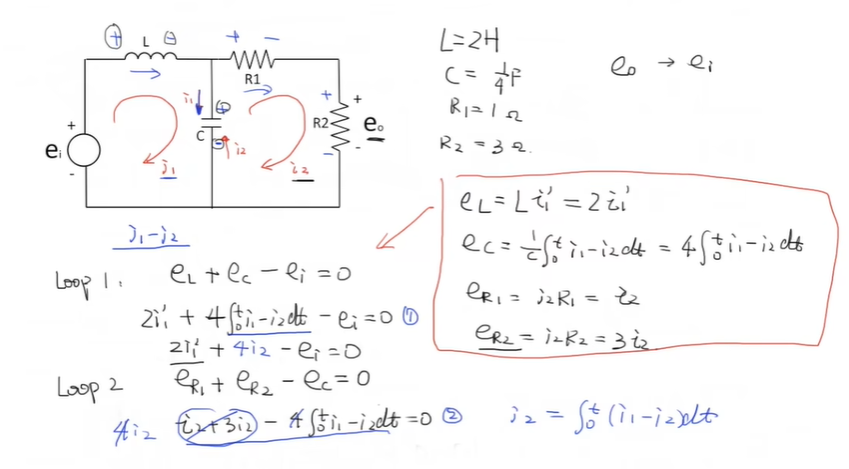 ⊕ L ⊖ + −
R1
i₁ ⊕ + +
R2 e₀
+ C ⊖ i₂ − −
eᵢ i₁ i₂
-
i₁-i₂
L=2H
C = 1/4 F
R₁=1 Ω
R₂ = 3 Ω.
e₀ → eᵢ
e_L = L i₁' = 2 i₁'
e_C = 1/C ∫₀ᵗ i₁-i₂ dt = 4∫₀ᵗ i₁-i₂ dt
e_R₁ = i₂R₁ = i₂
e_R₂ = i₂R₂ = 3 i₂
Loop 1. e_L + e_C - eᵢ = 0
2i₁' + 4∫₀ᵗ i₁-i₂ dt - eᵢ = 0 ①
2i₁' + 4i₂ - eᵢ = 0
Loop 2 e_R₁ + e_R₂ - e_C = 0
4i₂ i₂+3i₂ - 4∫₀ᵗ i₁-i₂ dt = 0 ② i₂ = ∫₀ᵗ (i₁-i₂) dt